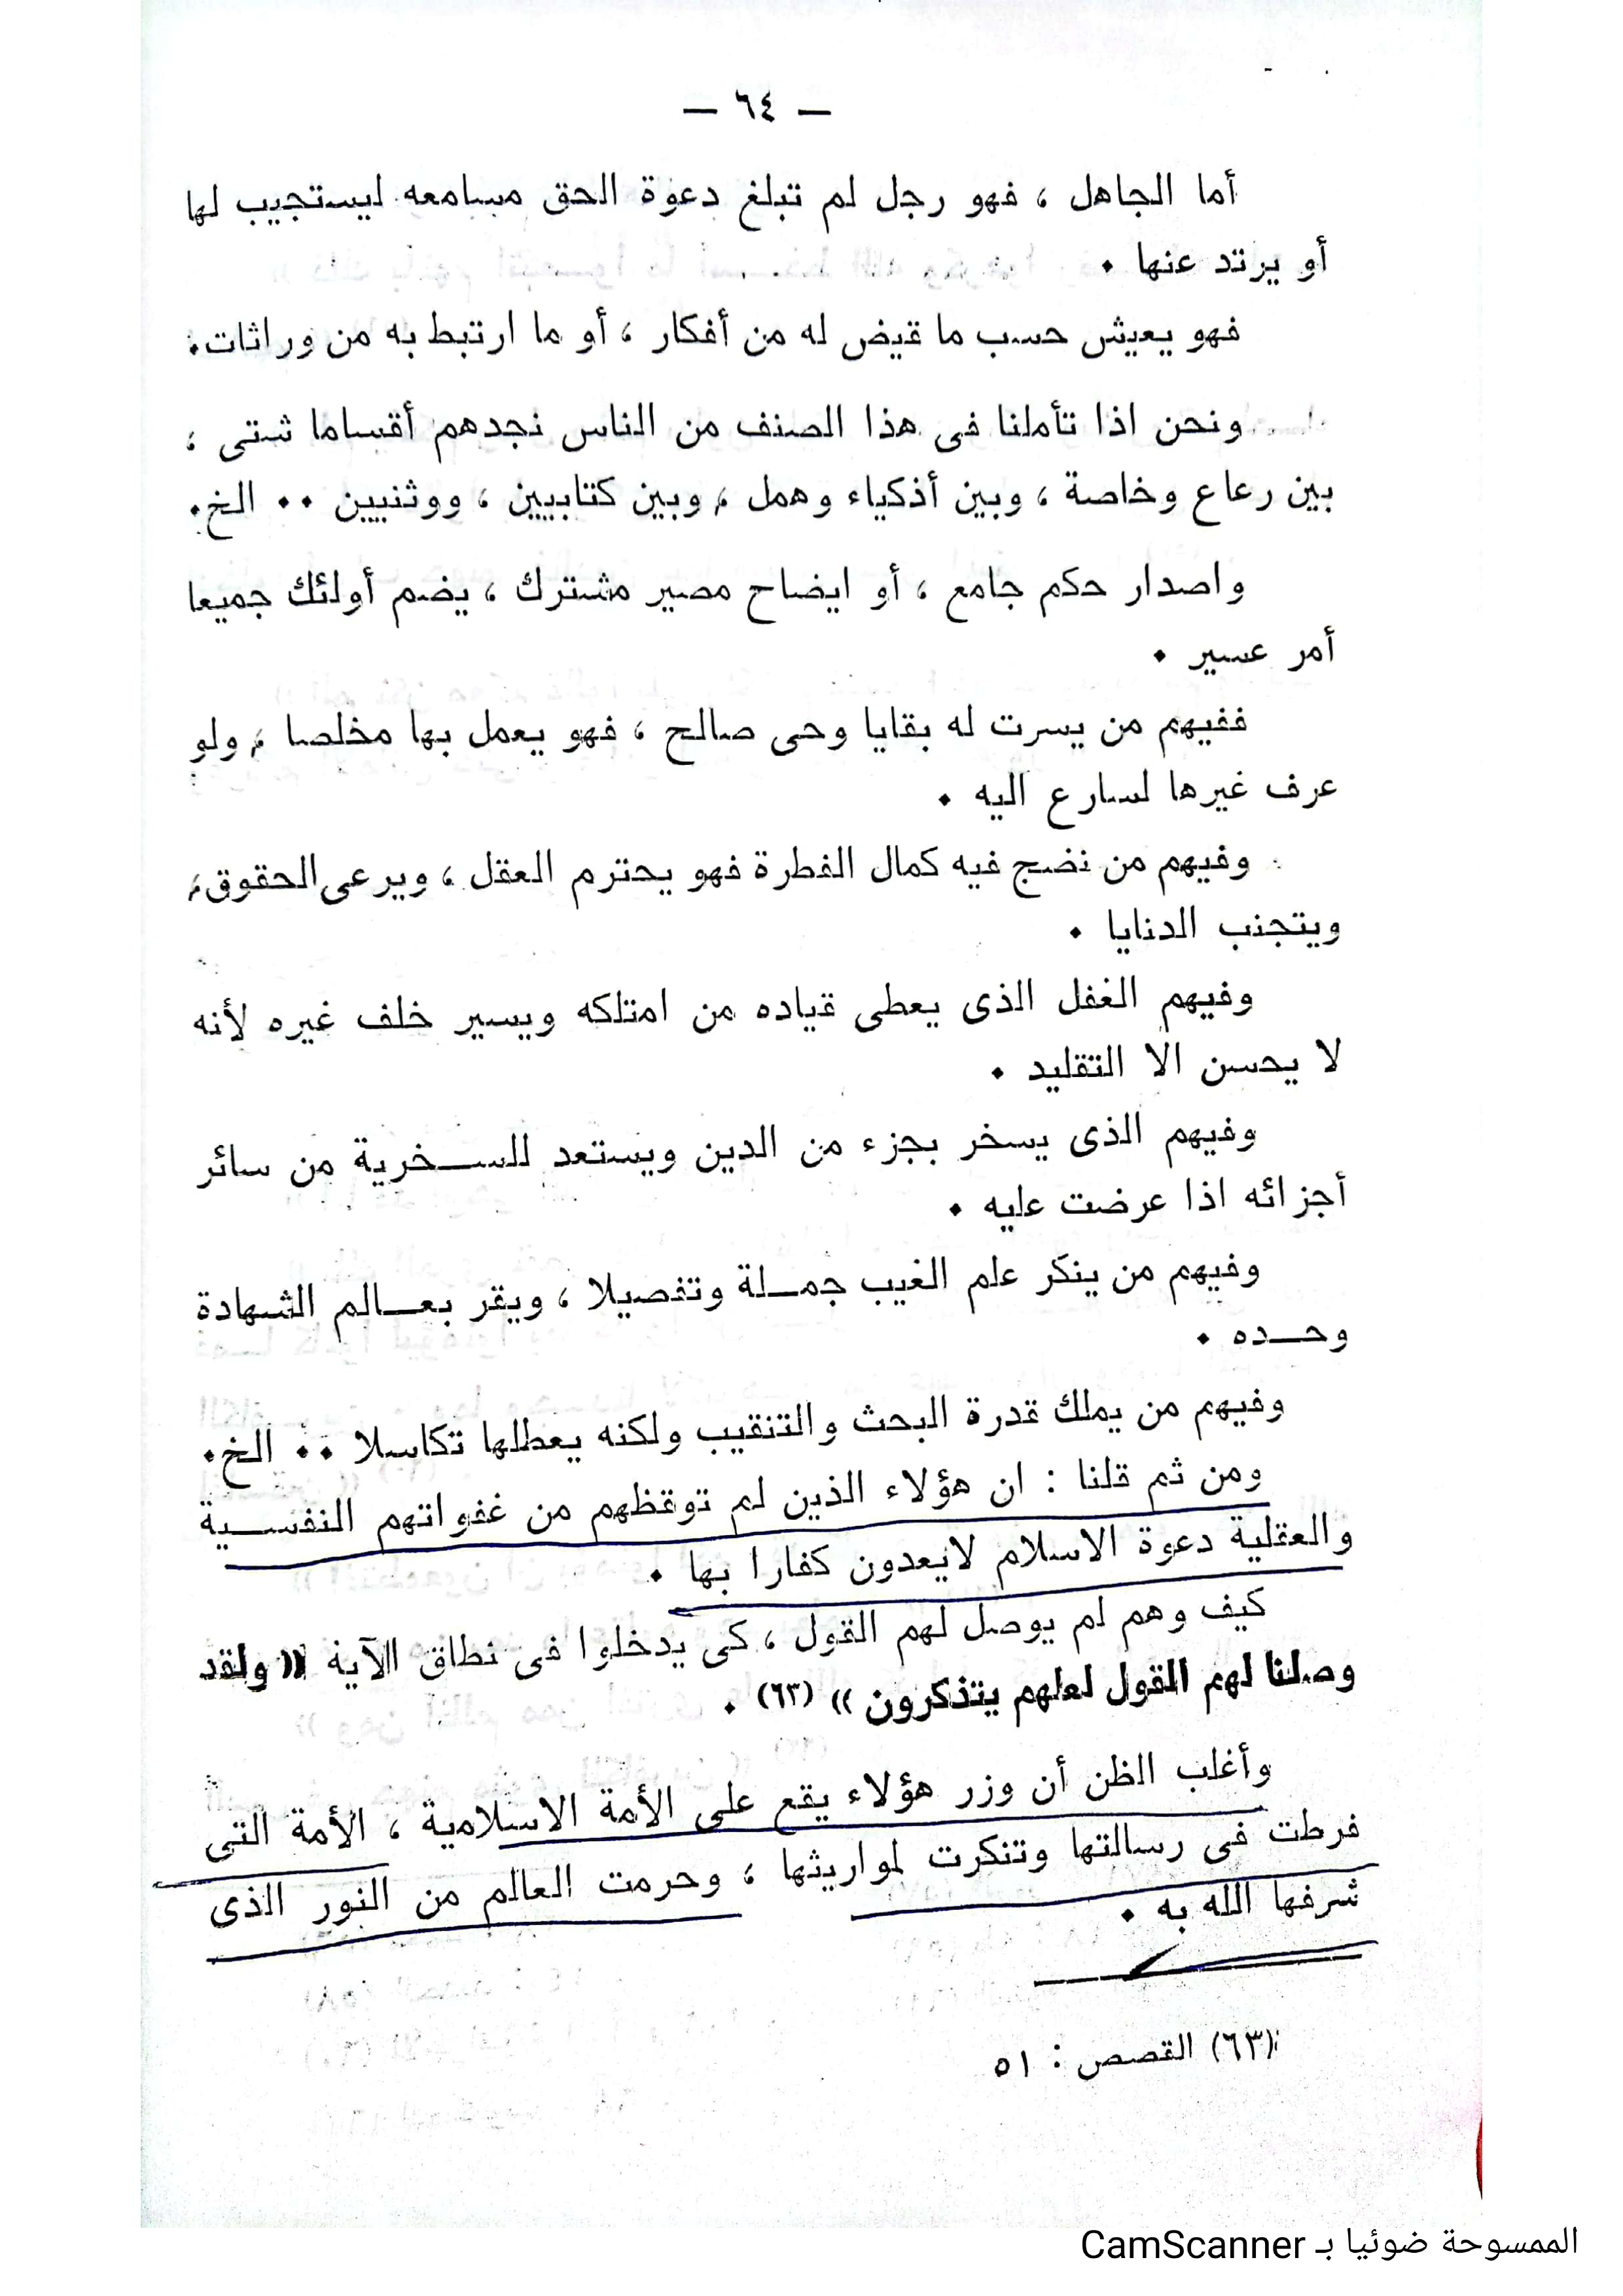 — ٦٤ —
أما الجاهل ، فهو رجل لم تبلغ دعوة الحق مسامعه ليستجيب لها
أو يرتد عنها ٠
فهو يعيش حسب ما قيض له من أفكار ، أو ما ارتبط به من وراثات٠
ونحن اذا تأملنا فى هذا الصنف من الناس نجدهم أقساما شتى ،
بين رعاع وخاصة ، وبين أذكياء وهمل ، وبين كتابيين ، ووثنيين ٠٠ الخ٠
واصدار حكم جامع ، أو ايضاح مصير مشترك ، يضم أولئك جميعا
أمر عسير ٠
ففيهم من يسرت له بقايا وحى صالح ، فهو يعمل بها مخلصا ، ولو
عرف غيرها لسارع اليه ٠
وفيهم من نضج فيه كمال الفطرة فهو يحترم العقل ، ويرعى الحقوق ،
ويتجنب الدنايا ٠
وفيهم الغفل الذى يعطى قياده من امتلكه ويسير خلف غيره لأنه
لا يحسن الا التقليد ٠
وفيهم الذى يسخر بجزء من الدين ويستعد للسخرية من سائر
أجزائه اذا عرضت عليه ٠
وفيهم من ينكر علم الغيب جملة وتفصيلا ، ويقر بعالم الشهادة
وحده ٠
وفيهم من يملك قدرة البحث والتنقيب ولكنه يعطلها تكاسلا ٠٠ الخ٠
ومن ثم قلنا : ان هؤلاء الذين لم توقظهم من غفواتهم النفسية
والعقلية دعوة الاسلام لايعدون كفارا بها ٠
كيف وهم لم يوصل لهم القول ، كى يدخلوا فى نطاق الآية « ولقد
وصلنا لهم القول لعلهم يتذكرون » (٦٣) ٠
وأغلب الظن أن وزر هؤلاء يقع على الأمة الاسلامية ، الأمة التى
فرطت فى رسالتها وتنكرت لمواريثها ، وحرمت العالم من النور الذى
شرفها الله به ٠
(٦٣) القصص : ٥١
الممسوحة ضوئيا بـ CamScanner